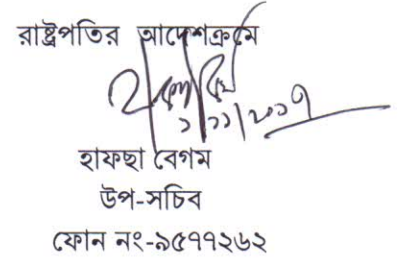 রাষ্ট্রপতির আদেশক্রমে
১/১১/২০১৭
হাফছা বেগম
উপ-সচিব
ফোন নং-৯৫৭৭২৬২